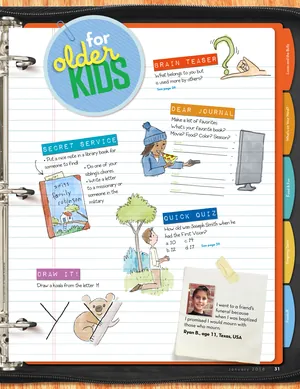 for
older
KIDS
BRAIN TEASER
What belongs to you but
is used more by others?
DEAR JOURNAL
Make a list of favorites.
What's your favorite book?
Movie? Food? Color? Season?
SECRET SERVICE
• Put a nice note in a library book for
someone to find!
• Do one of your
sibling's chores.
• Write a letter
to a missionary or
someone in the
military.
swiss
family
robinson
QUICK QUIZ
How old was Joseph Smith when he
had the First Vision?
a. 10 c. 14
b. 12 d. 17
DRAW IT!
Draw a koala from the letter Y!
Y
I went to a friend's
funeral because
when I was baptized
I promised I would mourn with
those who mourn.
Ryan B., age 11, Texas, USA
January 2018 31